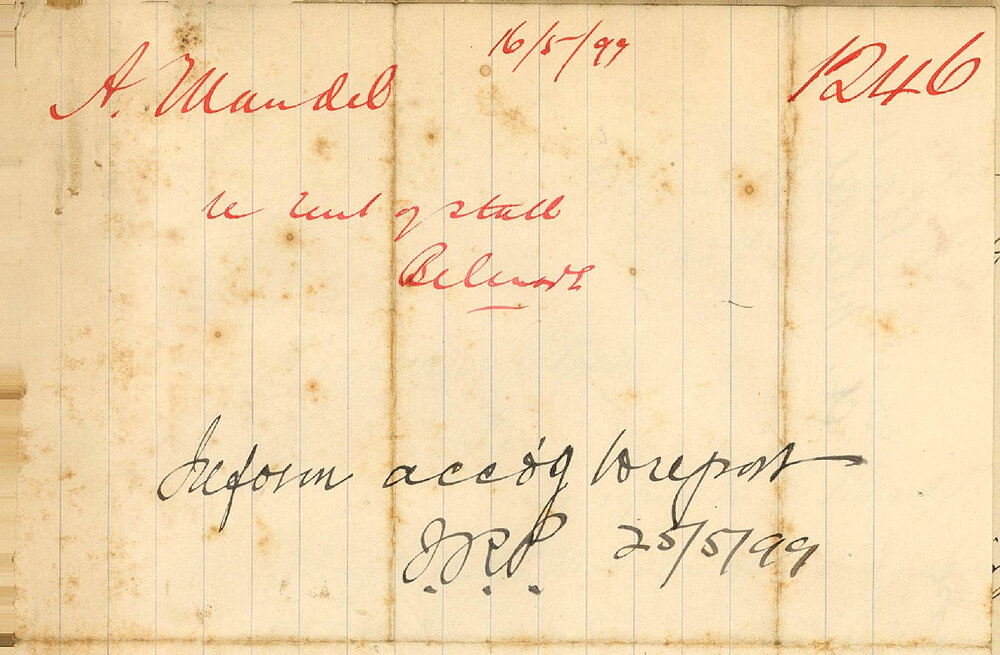 16/5/99
A. Mandel 1246
re rent of stall
Belmore
Inform accd'g to report
J.R.P. 25/5/99